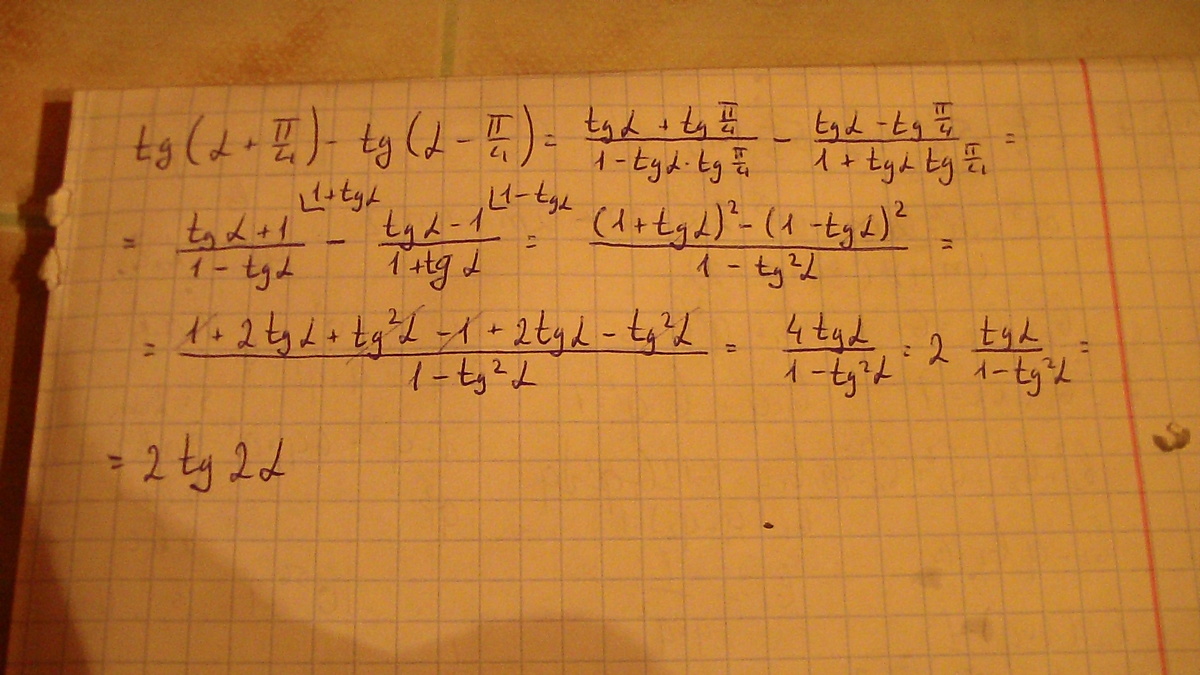 tg(α + π/4) - tg(α - π/4) = (tgα + tg π/4)/(1 - tgα · tg π/4) - (tgα - tg π/4)/(1 + tgα tg π/4) =
= (tgα + 1)/(1 - tgα) ⌊1 + tgα - (tgα - 1)/(1 + tgα) ⌊1 - tgα = ((1 + tgα)² - (1 - tgα)²)/(1 - tg²α) =
= (1 + 2tgα + tg²α - 1 + 2tgα - tg²α)/(1 - tg²α) = 4tgα/(1 - tg²α) = 2 tgα/(1 - tg²α) =
= 2 tg 2α